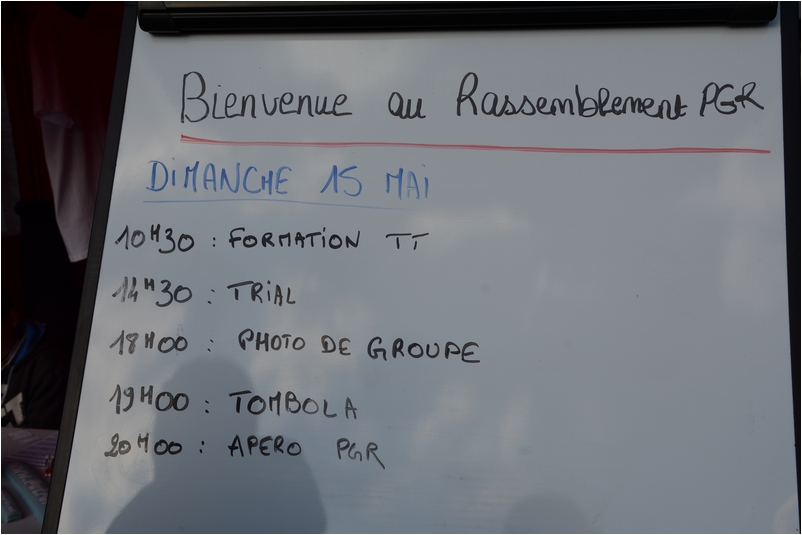 Bienvenue au Rassemblement PGR
DiMANCHE 15 MAi
10H30 : FORMATiON TT
14H30 : TRiAL
18H00 : PHOTO DE GROUPE
19H00 : TOMBOLA
20H00 : APERO PGR